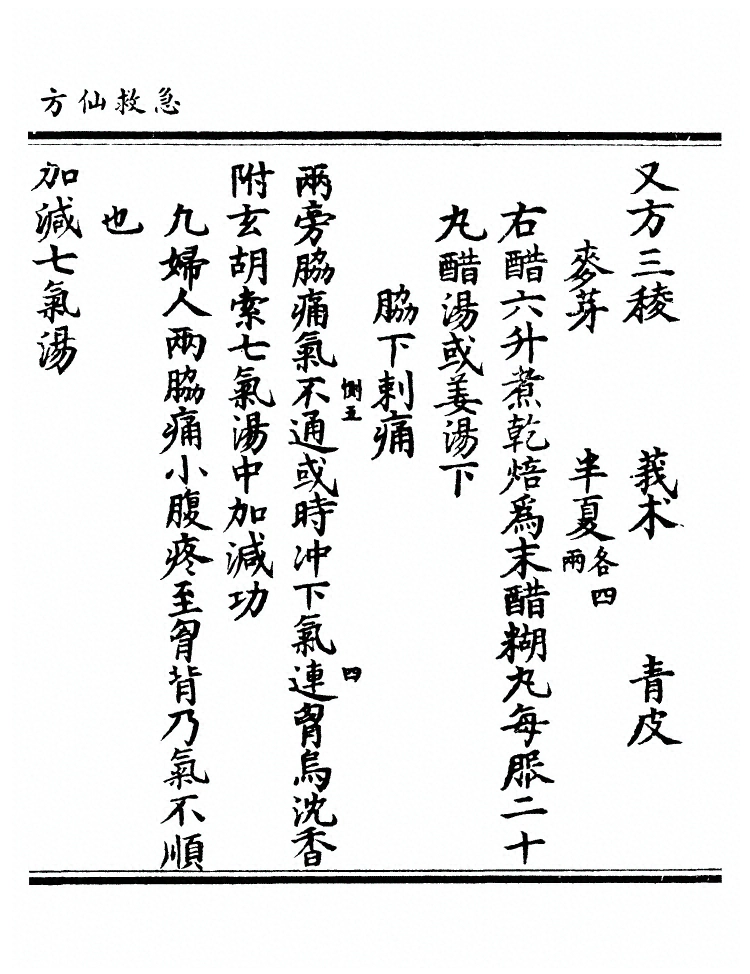 急救仙方
又方三稜 莪术 青皮
麥芽 半夏各四兩
右醋六升煮乾焙爲末醋糊丸每服二十
丸醋湯或姜湯下
脇下刺痛
惻五 四
兩旁脇痛氣不通或時冲下氣連胷烏沈香
附玄胡索七氣湯中加減功
凢婦人兩脇痛小腹疼至胷背乃氣不順
也
加減七氣湯